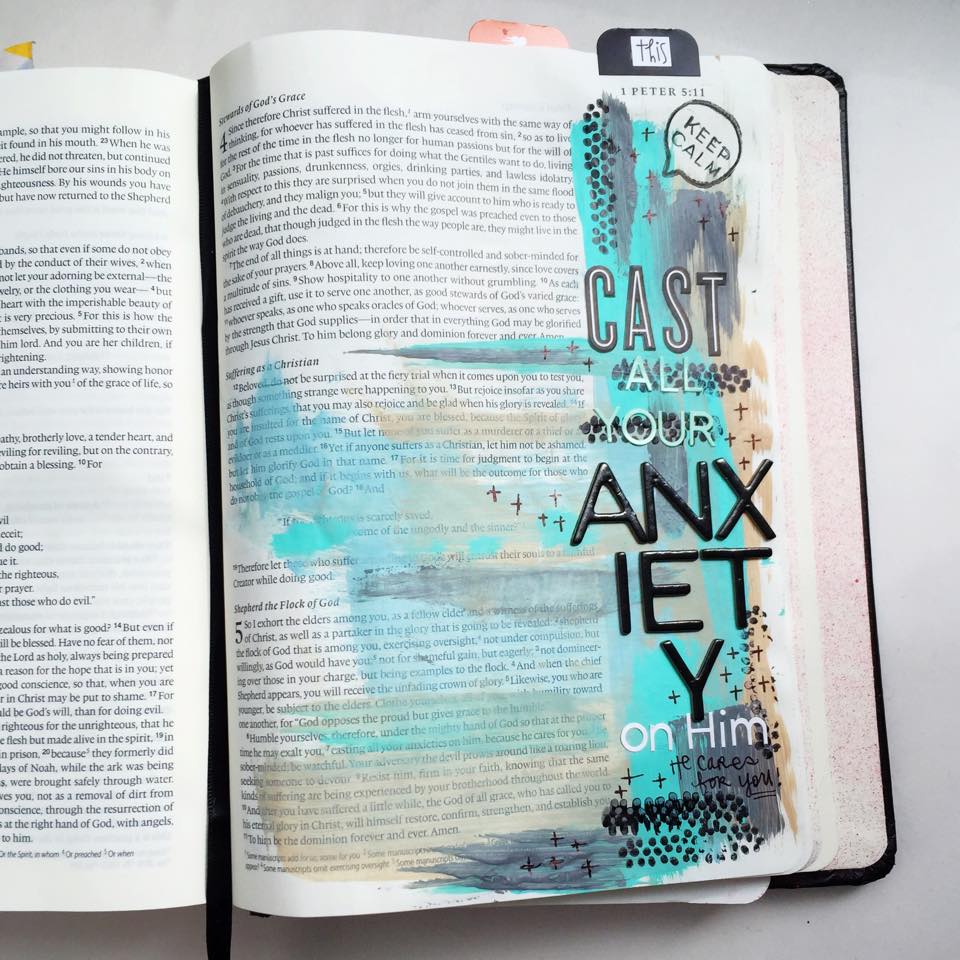 ample, so that you might follow in his
it found in his mouth. 23 When he was
ered, he did not threaten, but continued
He himself bore our sins in his body on
ghteousness. By his wounds you have
but have now returned to the Shepherd
bands, so that even if some do not obey
d by the conduct of their wives, 2 when
not let your adorning be external—the
welry, or the clothing you wear— 4 but
heart with the imperishable beauty of
is very precious. 5 For this is how the
themselves, by submitting to their own
him lord. And you are her children, if
rightening.
an understanding way, showing honor
e heirs with you¹ of the grace of life, so
athy, brotherly love, a tender heart, and
viling for reviling, but on the contrary,
obtain a blessing. 10 For
vil
eceit;
d do good;
ue it.
the righteous,
r prayer.
nst those who do evil."
zealous for what is good? 14 But even if
ill be blessed. Have no fear of them, nor
the Lord as holy, always being prepared
a reason for the hope that is in you; yet
good conscience, so that, when you are
r in Christ may be put to shame. 17 For
ld be God's will, than for doing evil.
righteous for the unrighteous, that he
e flesh but made alive in the spirit, 19 in
in prison, 20 because⁵ they formerly did
days of Noah, while the ark was being
s, were brought safely through water.
ves you, not as a removal of dirt from
onscience, through the resurrection of
s at the right hand of God, with angels,
to him.
Or the Spirit, in whom ⁴ Or preached ⁵ Or when
this
1 PETER 5:11
Stewards of God's Grace
4 Since therefore Christ suffered in the flesh,¹ arm yourselves with the same way of
thinking, for whoever has suffered in the flesh has ceased from sin, 2 so as to live
for the rest of the time in the flesh no longer for human passions but for the will of
God. 3 For the time that is past suffices for doing what the Gentiles want to do, living
in sensuality, passions, drunkenness, orgies, drinking parties, and lawless idolatry.
4 With respect to this they are surprised when you do not join them in the same flood
of debauchery, and they malign you; 5 but they will give account to him who is ready to
judge the living and the dead. 6 For this is why the gospel was preached even to those
who are dead, that though judged in the flesh the way people are, they might live in the
spirit the way God does.
7 The end of all things is at hand; therefore be self-controlled and sober-minded for
the sake of your prayers. 8 Above all, keep loving one another earnestly, since love covers
a multitude of sins. 9 Show hospitality to one another without grumbling. 10 As each
has received a gift, use it to serve one another, as good stewards of God's varied grace:
11 whoever speaks, as one who speaks oracles of God; whoever serves, as one who serves
by the strength that God supplies—in order that in everything God may be glorified
through Jesus Christ. To him belong glory and dominion forever and ever. Amen.
Suffering as a Christian
12 Beloved, do not be surprised at the fiery trial when it comes upon you to test you,
as though something strange were happening to you. 13 But rejoice insofar as you share
Christ's sufferings, that you may also rejoice and be glad when his glory is revealed. 14 If
you are insulted for the name of Christ, you are blessed, because the Spirit of glory
and of God rests upon you. 15 But let none of you suffer as a murderer or a thief or
evildoer or as a meddler. 16 Yet if anyone suffers as a Christian, let him not be ashamed,
but let him glorify God in that name. 17 For it is time for judgment to begin at the
household of God; and if it begins with us, what will be the outcome for those who
do not obey the gospel of God? 18 And
"If the righteous is scarcely saved,
become of the ungodly and the sinner?"
19 Therefore let those who suffer God's will entrust their souls to a faithful
Creator while doing good.
Shepherd the Flock of God
5 So I exhort the elders among you, as a fellow elder and a witness of the sufferings
of Christ, as well as a partaker in the glory that is going to be revealed: 2 shepherd
the flock of God that is among you, exercising oversight,⁴ not under compulsion, but
willingly, as God would have you;⁵ not for shameful gain, but eagerly; 3 not domineer-
ing over those in your charge, but being examples to the flock. 4 And when the chief
Shepherd appears, you will receive the unfading crown of glory. 5 Likewise, you who are
younger, be subject to the elders. Clothe yourselves, with humility toward
one another, for "God opposes the proud but gives grace to the humble."
6 Humble yourselves, therefore, under the mighty hand of God so that at the proper
time he may exalt you, 7 casting all your anxieties on him, because he cares for you. 8 Be
sober-minded; be watchful. Your adversary the devil prowls around like a roaring lion,
seeking someone to devour. 9 Resist him, firm in your faith, knowing that the same
kinds of suffering are being experienced by your brotherhood throughout the world.
10 And after you have suffered a little while, the God of all grace, who has called you to
his eternal glory in Christ, will himself restore, confirm, strengthen, and establish you.
11 To him be the dominion forever and ever. Amen.
¹ Some manuscripts add for us; some for you ² Some manuscripts
⁴ Some manuscripts omit exercising oversight ⁵ Some manuscripts
KEEP
CALM
CAST
ALL
YOUR
ANX
IET
Y
on Him
He cares
for you!